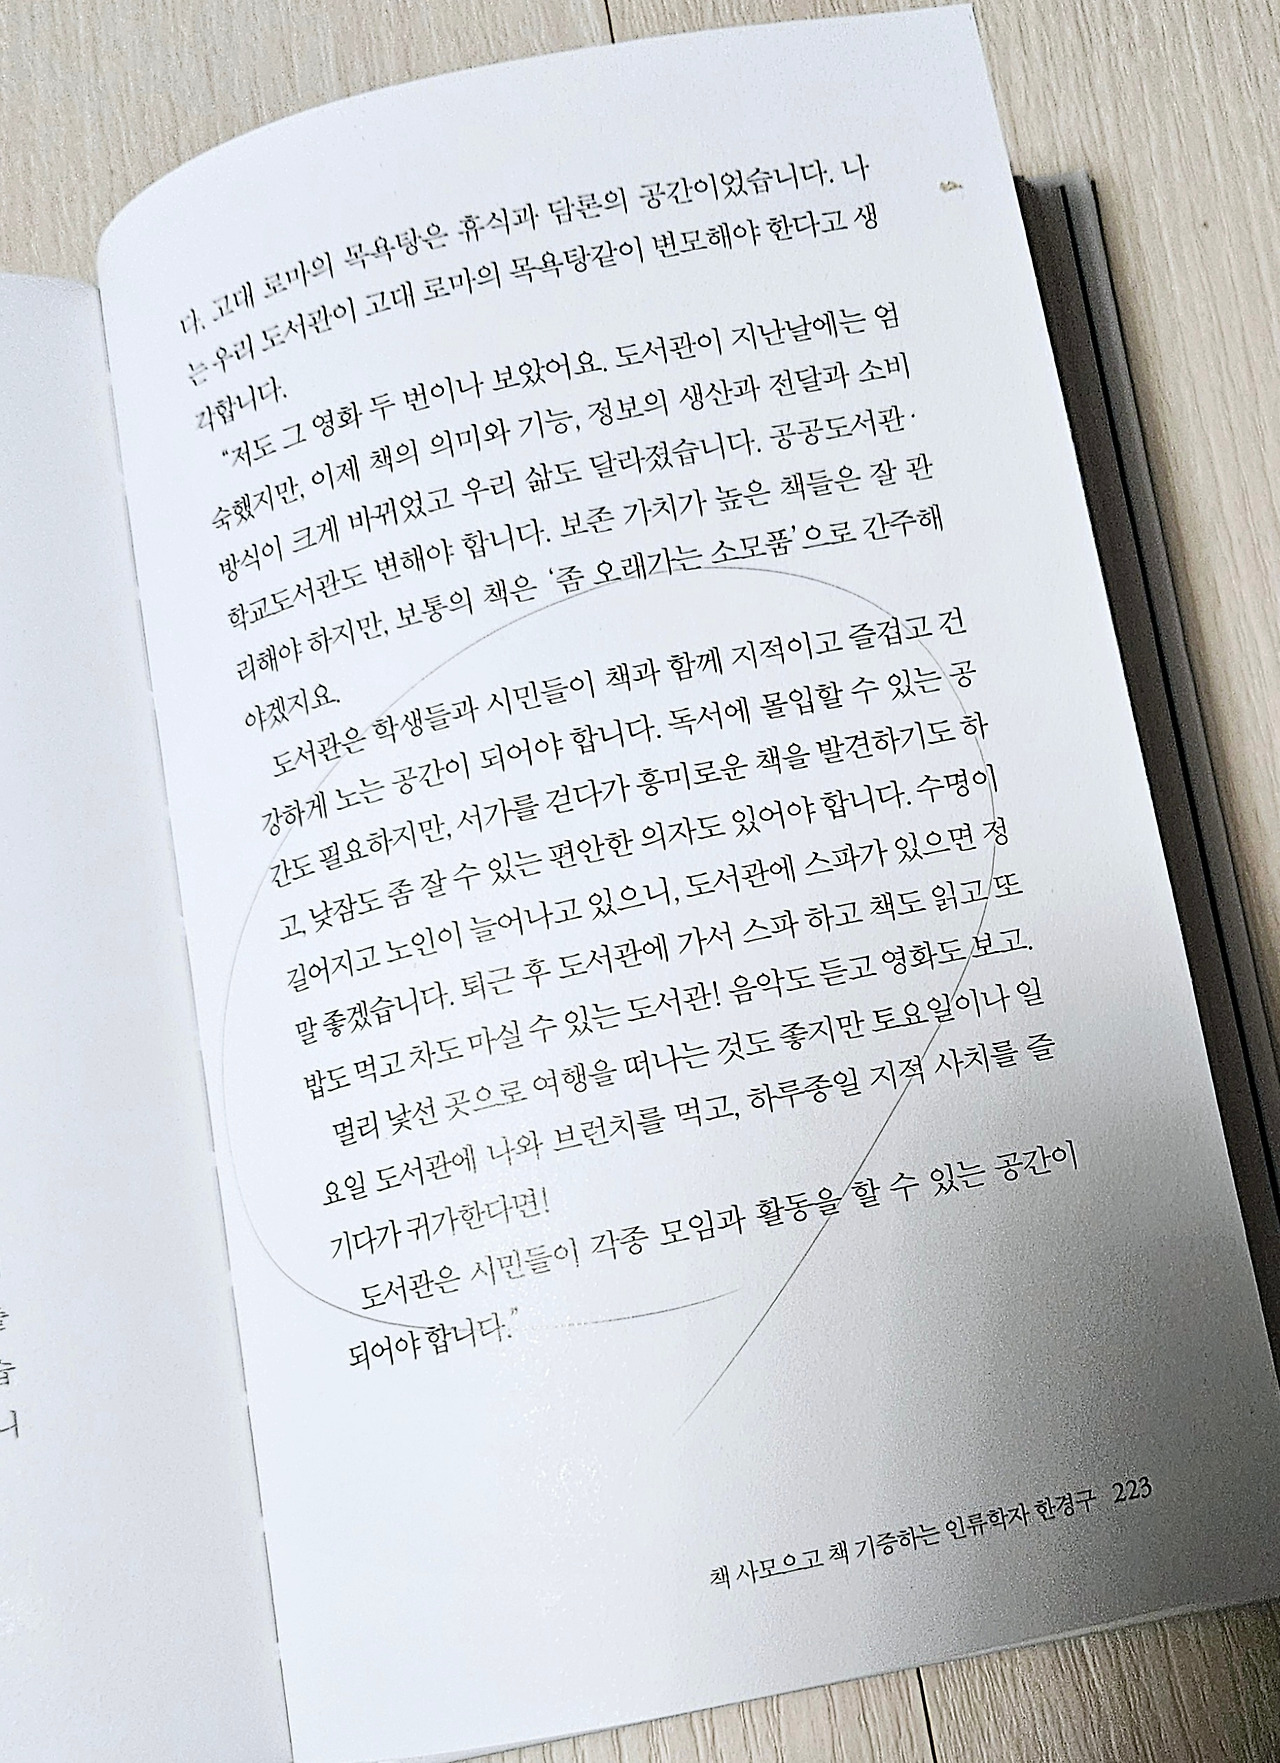 다. 고대 로마의 목욕탕은 휴식과 담론의 공간이었습니다. 나
는 우리 도서관이 고대 로마의 목욕탕같이 변모해야 한다고 생
각합니다.
“저도 그 영화 두 번이나 보았어요. 도서관이 지난날에는 엄
숙했지만, 이제 책의 의미와 기능, 정보의 생산과 전달과 소비
방식이 크게 바뀌었고 우리 삶도 달라졌습니다. 공공도서관·
학교도서관도 변해야 합니다. 보존 가치가 높은 책들은 잘 관
리해야 하지만, 보통의 책은 ‘좀 오래가는 소모품’으로 간주해
야겠지요.
도서관은 학생들과 시민들이 책과 함께 지적이고 즐겁고 건
강하게 노는 공간이 되어야 합니다. 독서에 몰입할 수 있는 공
간도 필요하지만, 서가를 걷다가 흥미로운 책을 발견하기도 하
고, 낮잠도 좀 잘 수 있는 편안한 의자도 있어야 합니다. 수명이
길어지고 노인이 늘어나고 있으니, 도서관에 스파가 있으면 정
말 좋겠습니다. 퇴근 후 도서관에 가서 스파 하고 책도 읽고 또
밥도 먹고 차도 마실 수 있는 도서관! 음악도 듣고 영화도 보고.
멀리 낯선 곳으로 여행을 떠나는 것도 좋지만 토요일이나 일
요일 도서관에 나와 브런치를 먹고, 하루종일 지적 사치를 즐
기다가 귀가한다면!
도서관은 시민들이 각종 모임과 활동을 할 수 있는 공간이
되어야 합니다.”
책 사모으고 책 기증하는 인류학자 한경구 223